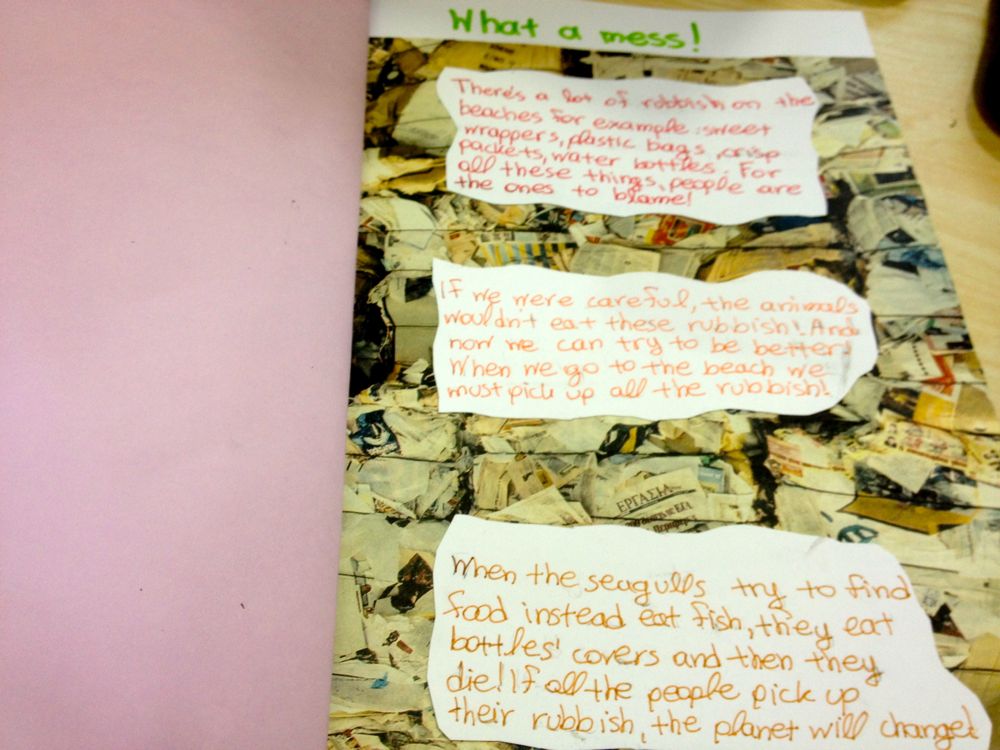 What a mess!
There's a lot of rubbish on the
beaches for example: sweet
wrappers, plastic bags, crisp
packets, water bottles. For
all these things, people are
the ones to blame!
If we were careful, the animals
wouldn't eat these rubbish! And
now we can try to be better!
When we go to the beach we
must pick up all the rubbish!
ΕΡΓΑΣΙΑ
When the seagulls try to find
food instead eat fish, they eat
bottles' covers and then they
die! If all the people pick up
their rubbish, the planet will change!